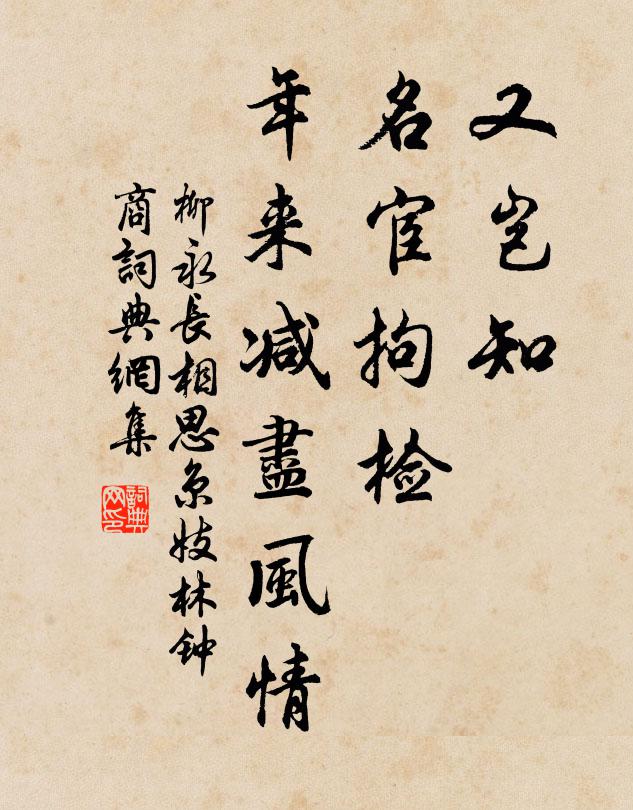 又岂知
名宦拘检
年来减盡風情
柳永長相思京妓林钟
商詞典網集
詞典网印